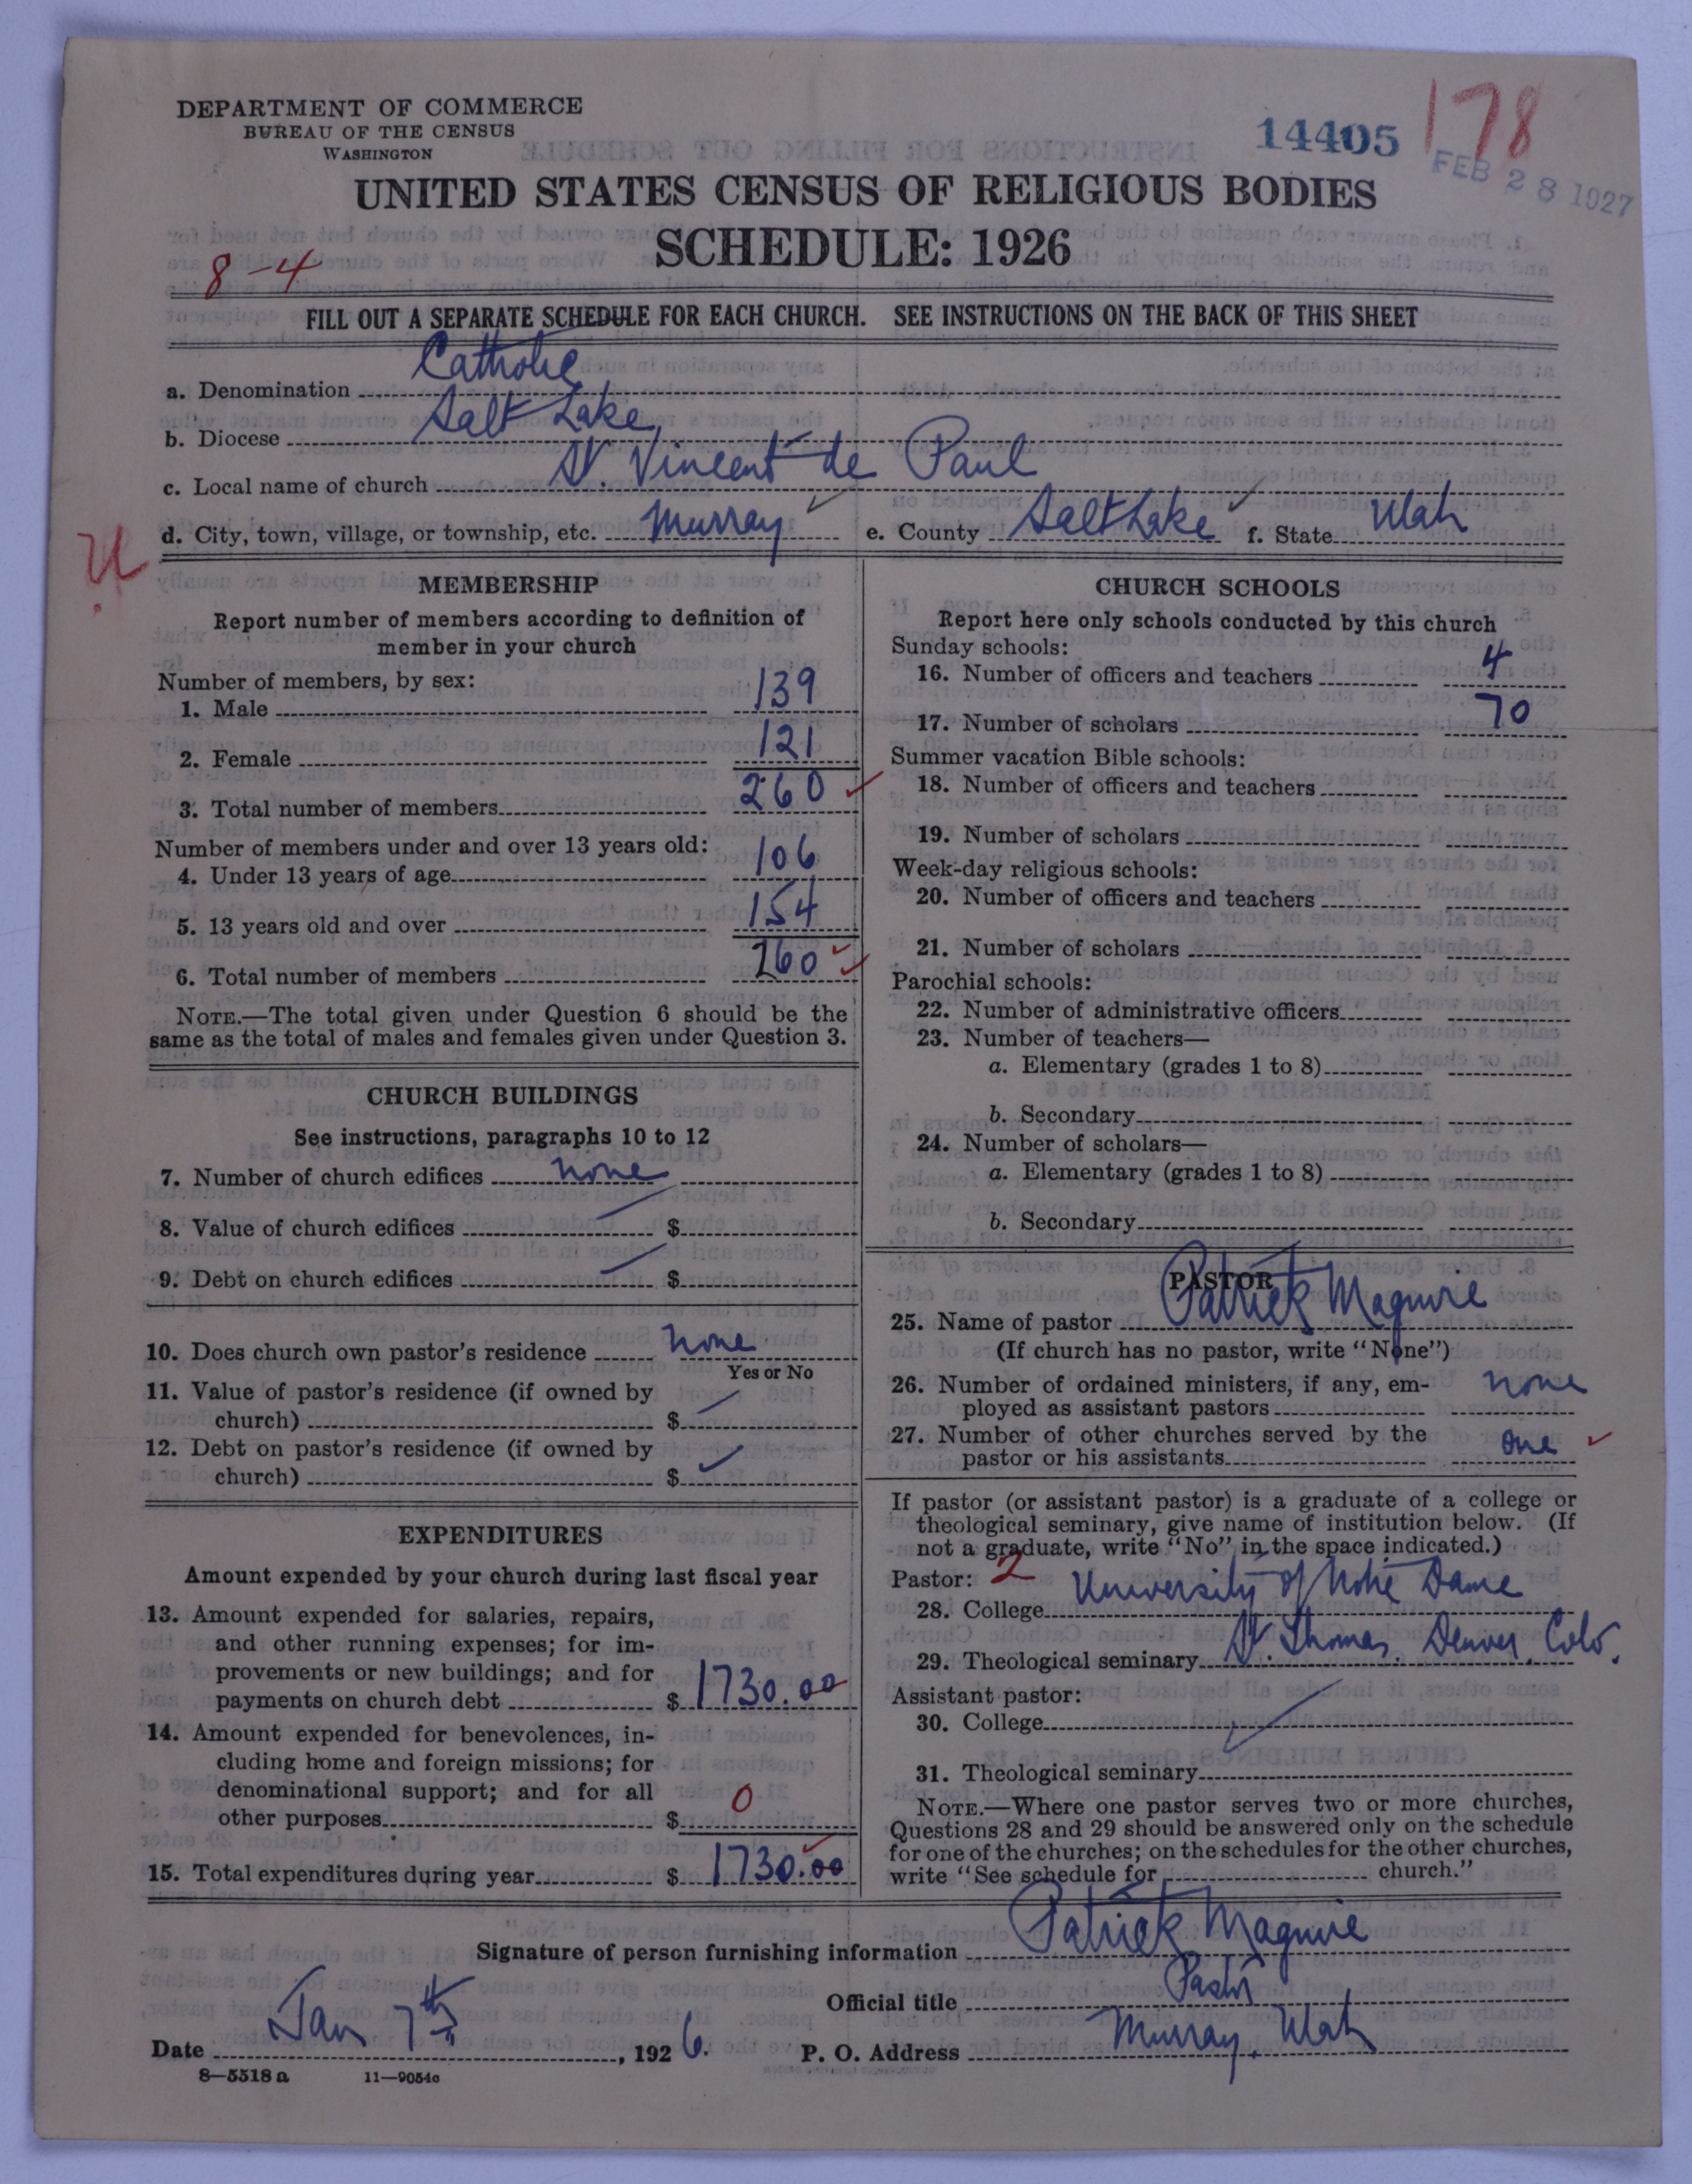 DEPARTMENT OF COMMERCE
BUREAU OF THE CENSUS
WASHINGTON
14405
178
FEB 28 1927
UNITED STATES CENSUS OF RELIGIOUS BODIES
SCHEDULE: 1926
8-4
FILL OUT A SEPARATE SCHEDULE FOR EACH CHURCH. SEE INSTRUCTIONS ON THE BACK OF THIS SHEET
a. Denomination Catholic
b. Diocese Salt Lake
c. Local name of church St. Vincent de Paul
d. City, town, village, or township, etc. Murray e. County Salt Lake f. State Utah
MEMBERSHIP
Report number of members according to definition of
member in your church
Number of members, by sex:
1. Male 139
2. Female 121
3. Total number of members 260
Number of members under and over 13 years old:
4. Under 13 years of age 106
5. 13 years old and over 154
6. Total number of members 260
NOTE.—The total given under Question 6 should be the
same as the total of males and females given under Question 3.
CHURCH BUILDINGS
See instructions, paragraphs 10 to 12
7. Number of church edifices none
8. Value of church edifices $
9. Debt on church edifices $
10. Does church own pastor's residence none
Yes or No
11. Value of pastor's residence (if owned by
church) $
12. Debt on pastor's residence (if owned by
church) $
EXPENDITURES
Amount expended by your church during last fiscal year
13. Amount expended for salaries, repairs,
and other running expenses; for im-
provements or new buildings; and for
payments on church debt $ 1730.00
14. Amount expended for benevolences, in-
cluding home and foreign missions; for
denominational support; and for all
other purposes $ 0
15. Total expenditures during year $ 1730.00
CHURCH SCHOOLS
Report here only schools conducted by this church
Sunday schools:
16. Number of officers and teachers 4
17. Number of scholars 70
Summer vacation Bible schools:
18. Number of officers and teachers
19. Number of scholars
Week-day religious schools:
20. Number of officers and teachers
21. Number of scholars
Parochial schools:
22. Number of administrative officers
23. Number of teachers—
a. Elementary (grades 1 to 8)
b. Secondary
24. Number of scholars—
a. Elementary (grades 1 to 8)
b. Secondary
PASTOR
25. Name of pastor Patrick Maguire
(If church has no pastor, write "None")
26. Number of ordained ministers, if any, em-
ployed as assistant pastors none
27. Number of other churches served by the
pastor or his assistants one
If pastor (or assistant pastor) is a graduate of a college or
theological seminary, give name of institution below. (If
not a graduate, write "No" in the space indicated.)
Pastor: 2
28. College University of Notre Dame
29. Theological seminary St. Thomas. Denver, Colo.
Assistant pastor:
30. College
31. Theological seminary
NOTE.—Where one pastor serves two or more churches,
Questions 28 and 29 should be answered only on the schedule
for one of the churches; on the schedules for the other churches,
write "See schedule for church."
Signature of person furnishing information Patrick Maguire
Official title Pastor
Date Jan 7th, 1926. P. O. Address Murray, Utah
8—5518 a 11—9054c